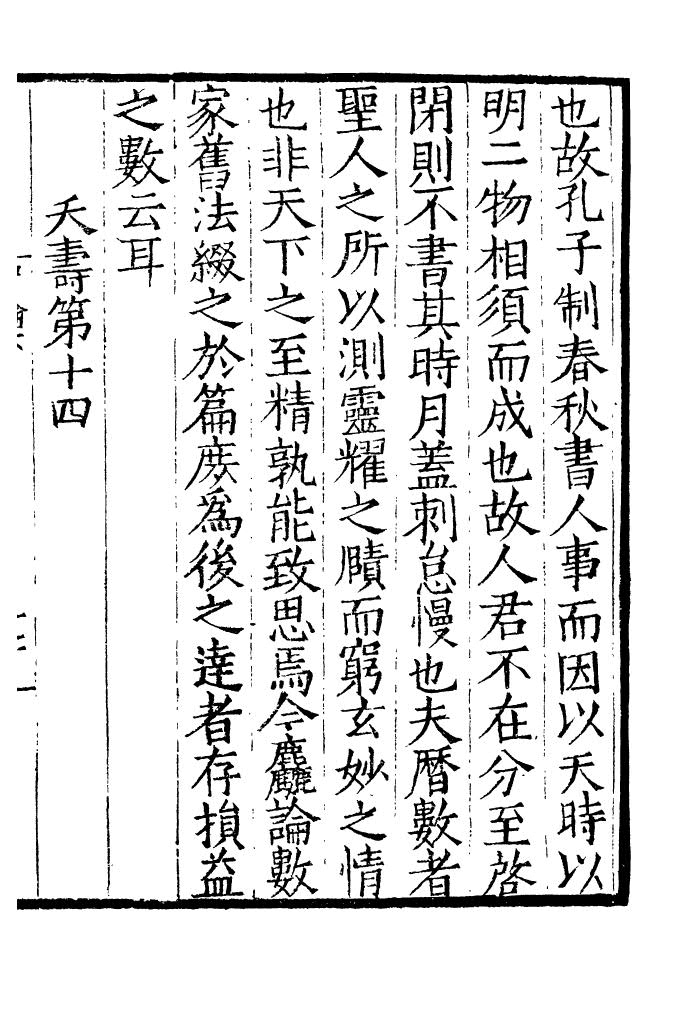 也故孔子制春秋書人事而因以天時以
明二物相須而成也故人君不在分至啓
閉則不書其時月蓋刺怠慢也夫曆數者
聖人之所以測靈耀之賾而窮玄妙之情
也非天下之至精孰能致思焉今麤論數
家舊法綴之於篇庻爲後之達者存損益
之數云耳
夭壽第十四